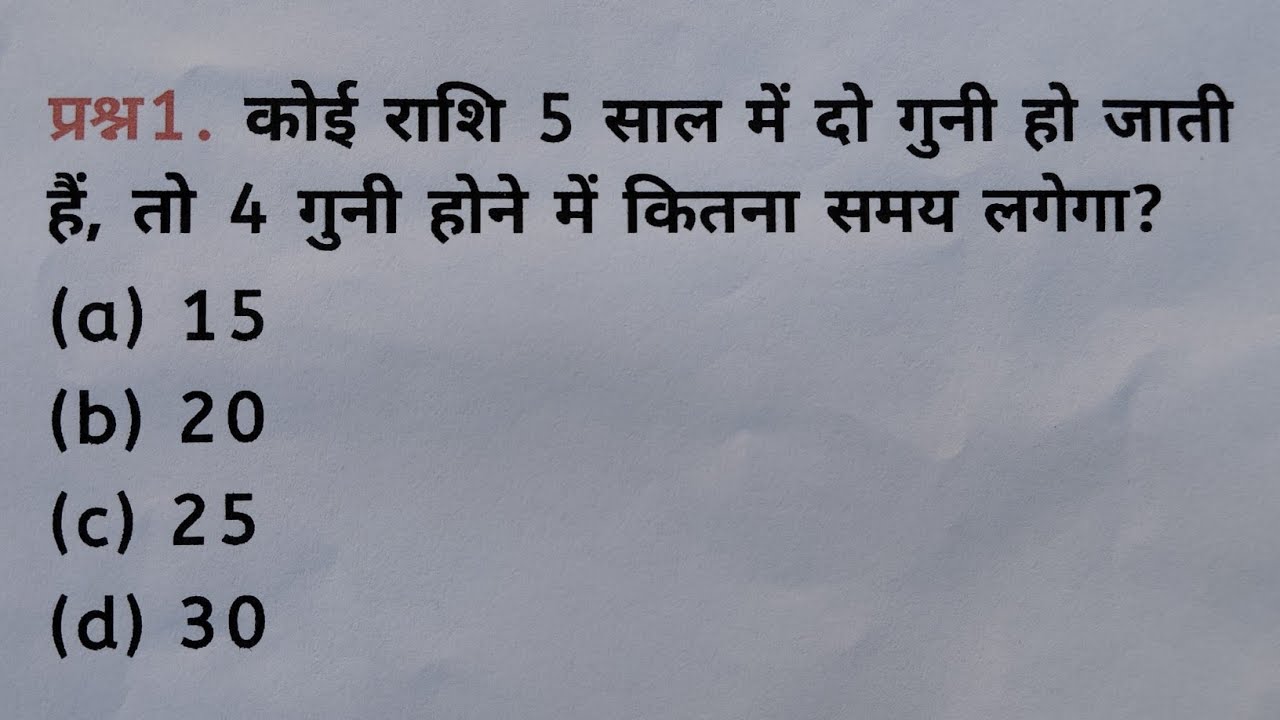 प्रश्न1. कोई राशि 5 साल में दो गुनी हो जाती
हैं, तो 4 गुनी होने में कितना समय लगेगा?
(a) 15
(b) 20
(c) 25
(d) 30